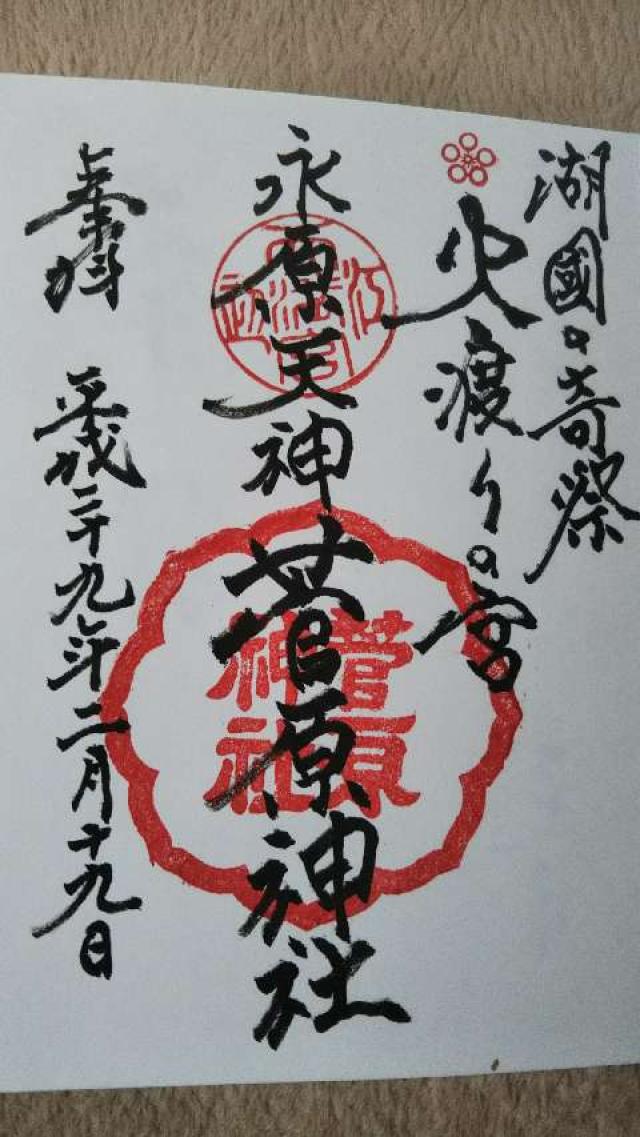 湖國の奇祭
火渡りの宮
永原天神 菅原神社
菅原
神社
奉拝 平成二十九年二月十九日